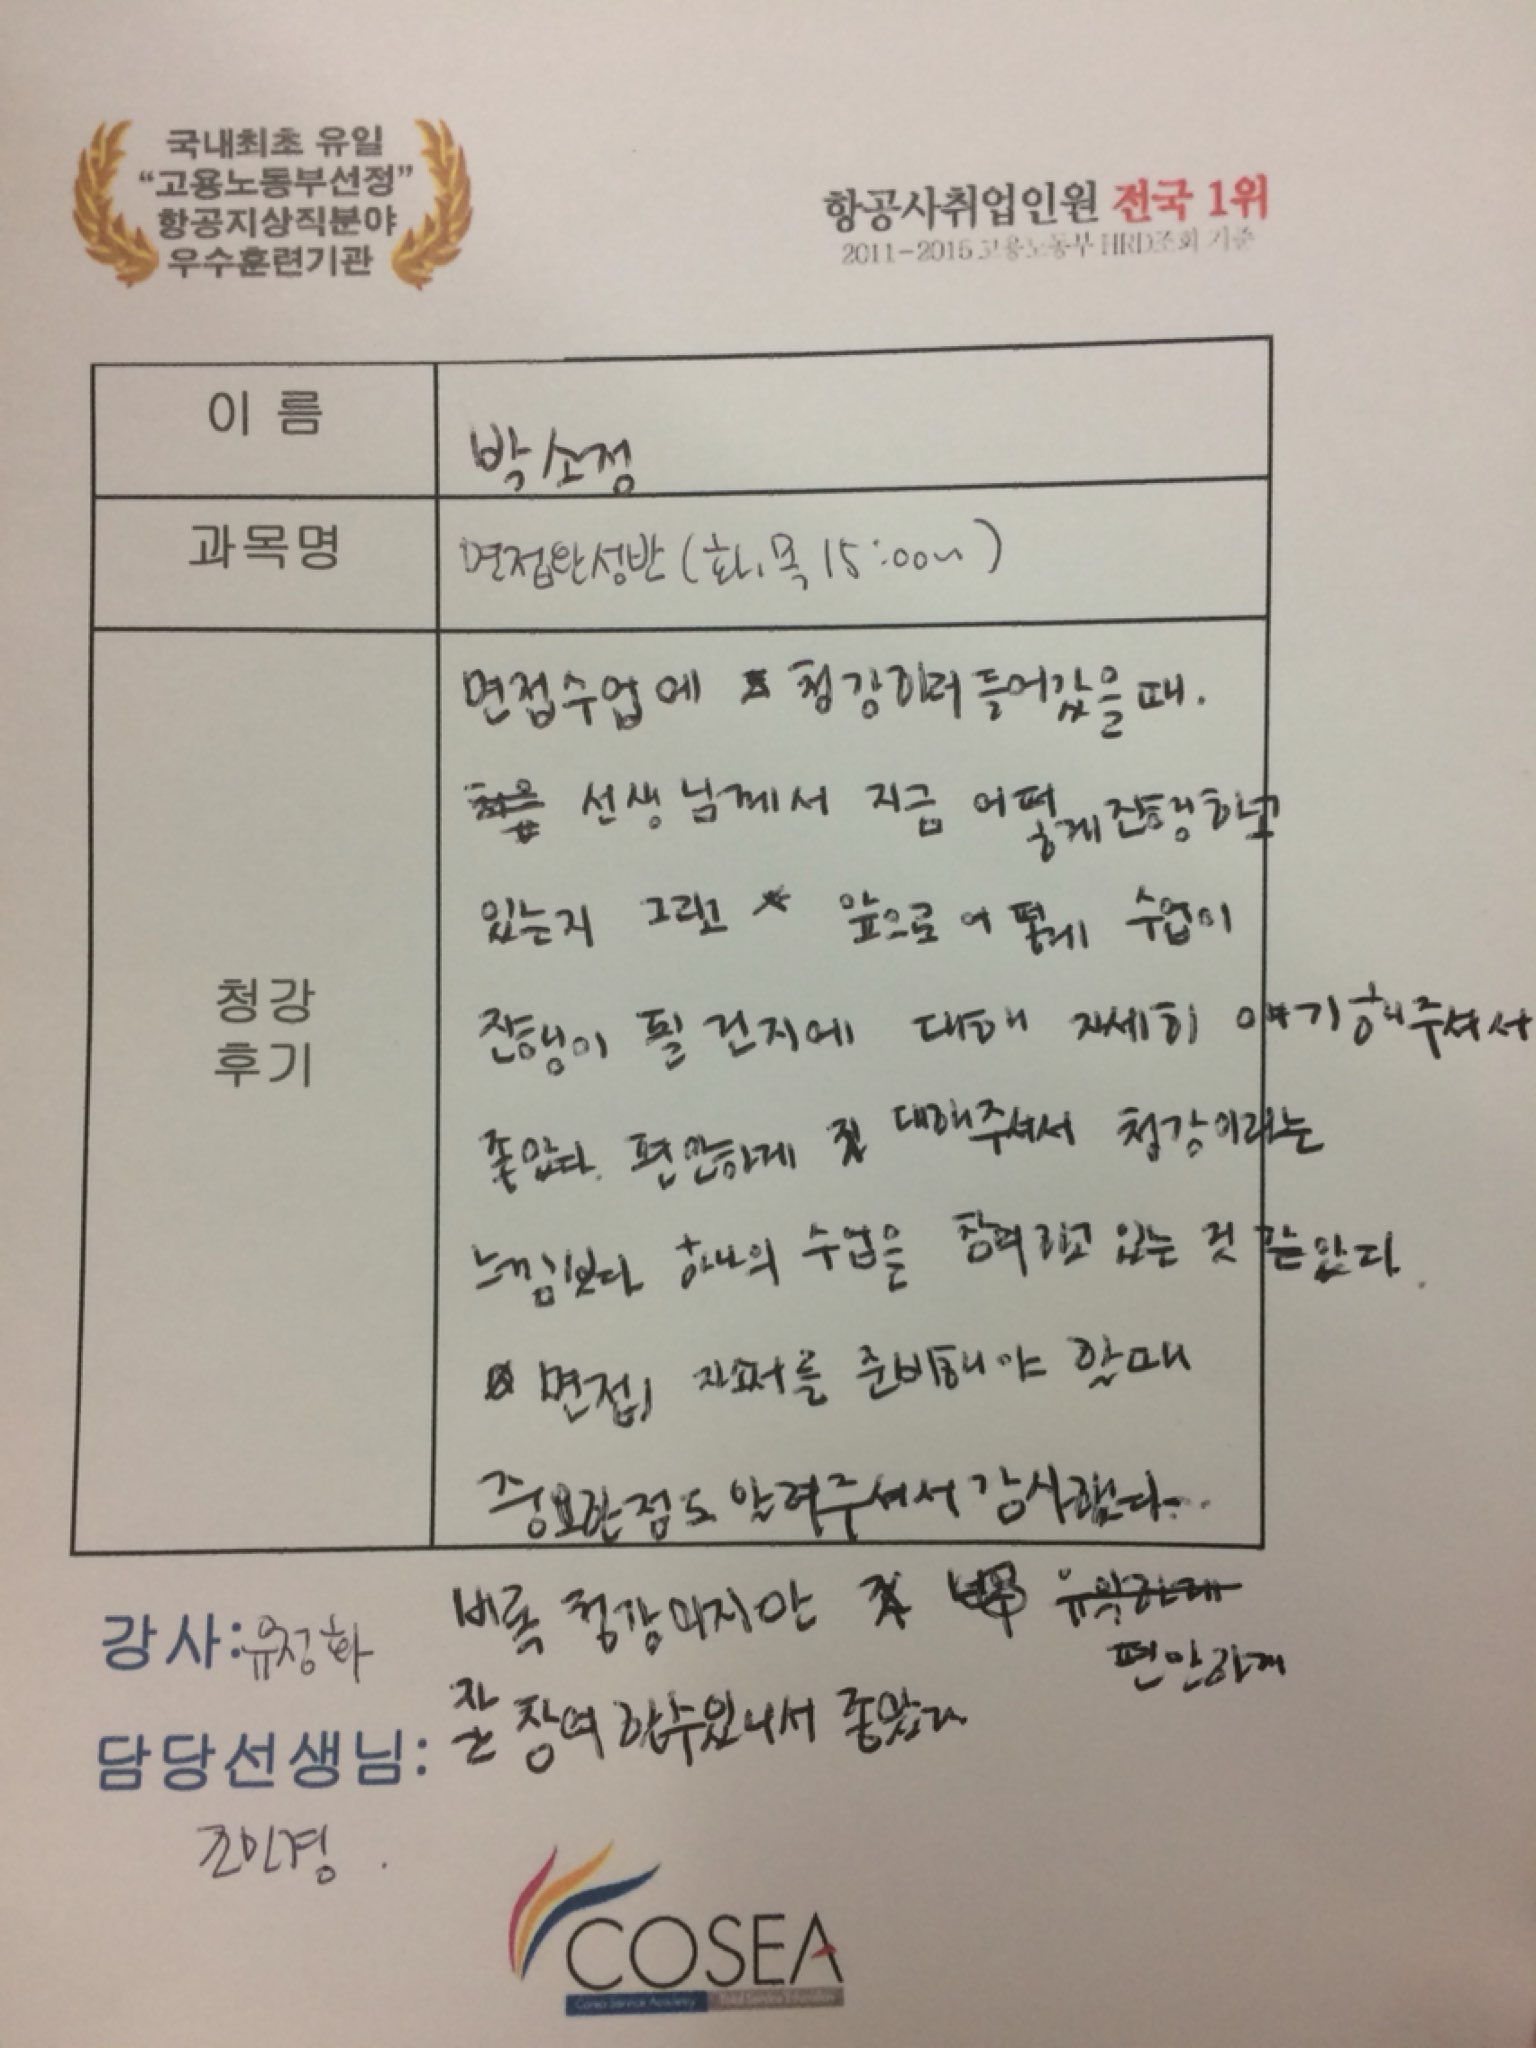 국내최초 유일
“고용노동부선정”
항공지상직분야
우수훈련기관
항공사취업인원 전국 1위
2011-2015 고용노동부 HRD조회 기준
이 름
박소정
과목명
면접완성반 (화, 목 15:00~)
청강
후기
면접수업에 청강하러 들어갔을 때.
선생님께서 지금 어떠
하게 진행하고
있는지 그리고 앞으로 어떻게 수업이
진행이 될 건지에 대해 자세히 얘기해주셔서
좋았다. 편안하게 대해주셔서 청강이라는
느낌보다 하나의 수업을 참여하고 있는 것 같았다.
면접, 자소서를 준비해야 할때
중요한점도 알려주셔서 감사했다..
비록 청강이지만
편안하게
잘 참여 할수있어서 좋았다
강사: 유정화
담당선생님:
조민경.
COSEA
Corea Service Academy Total Service Education